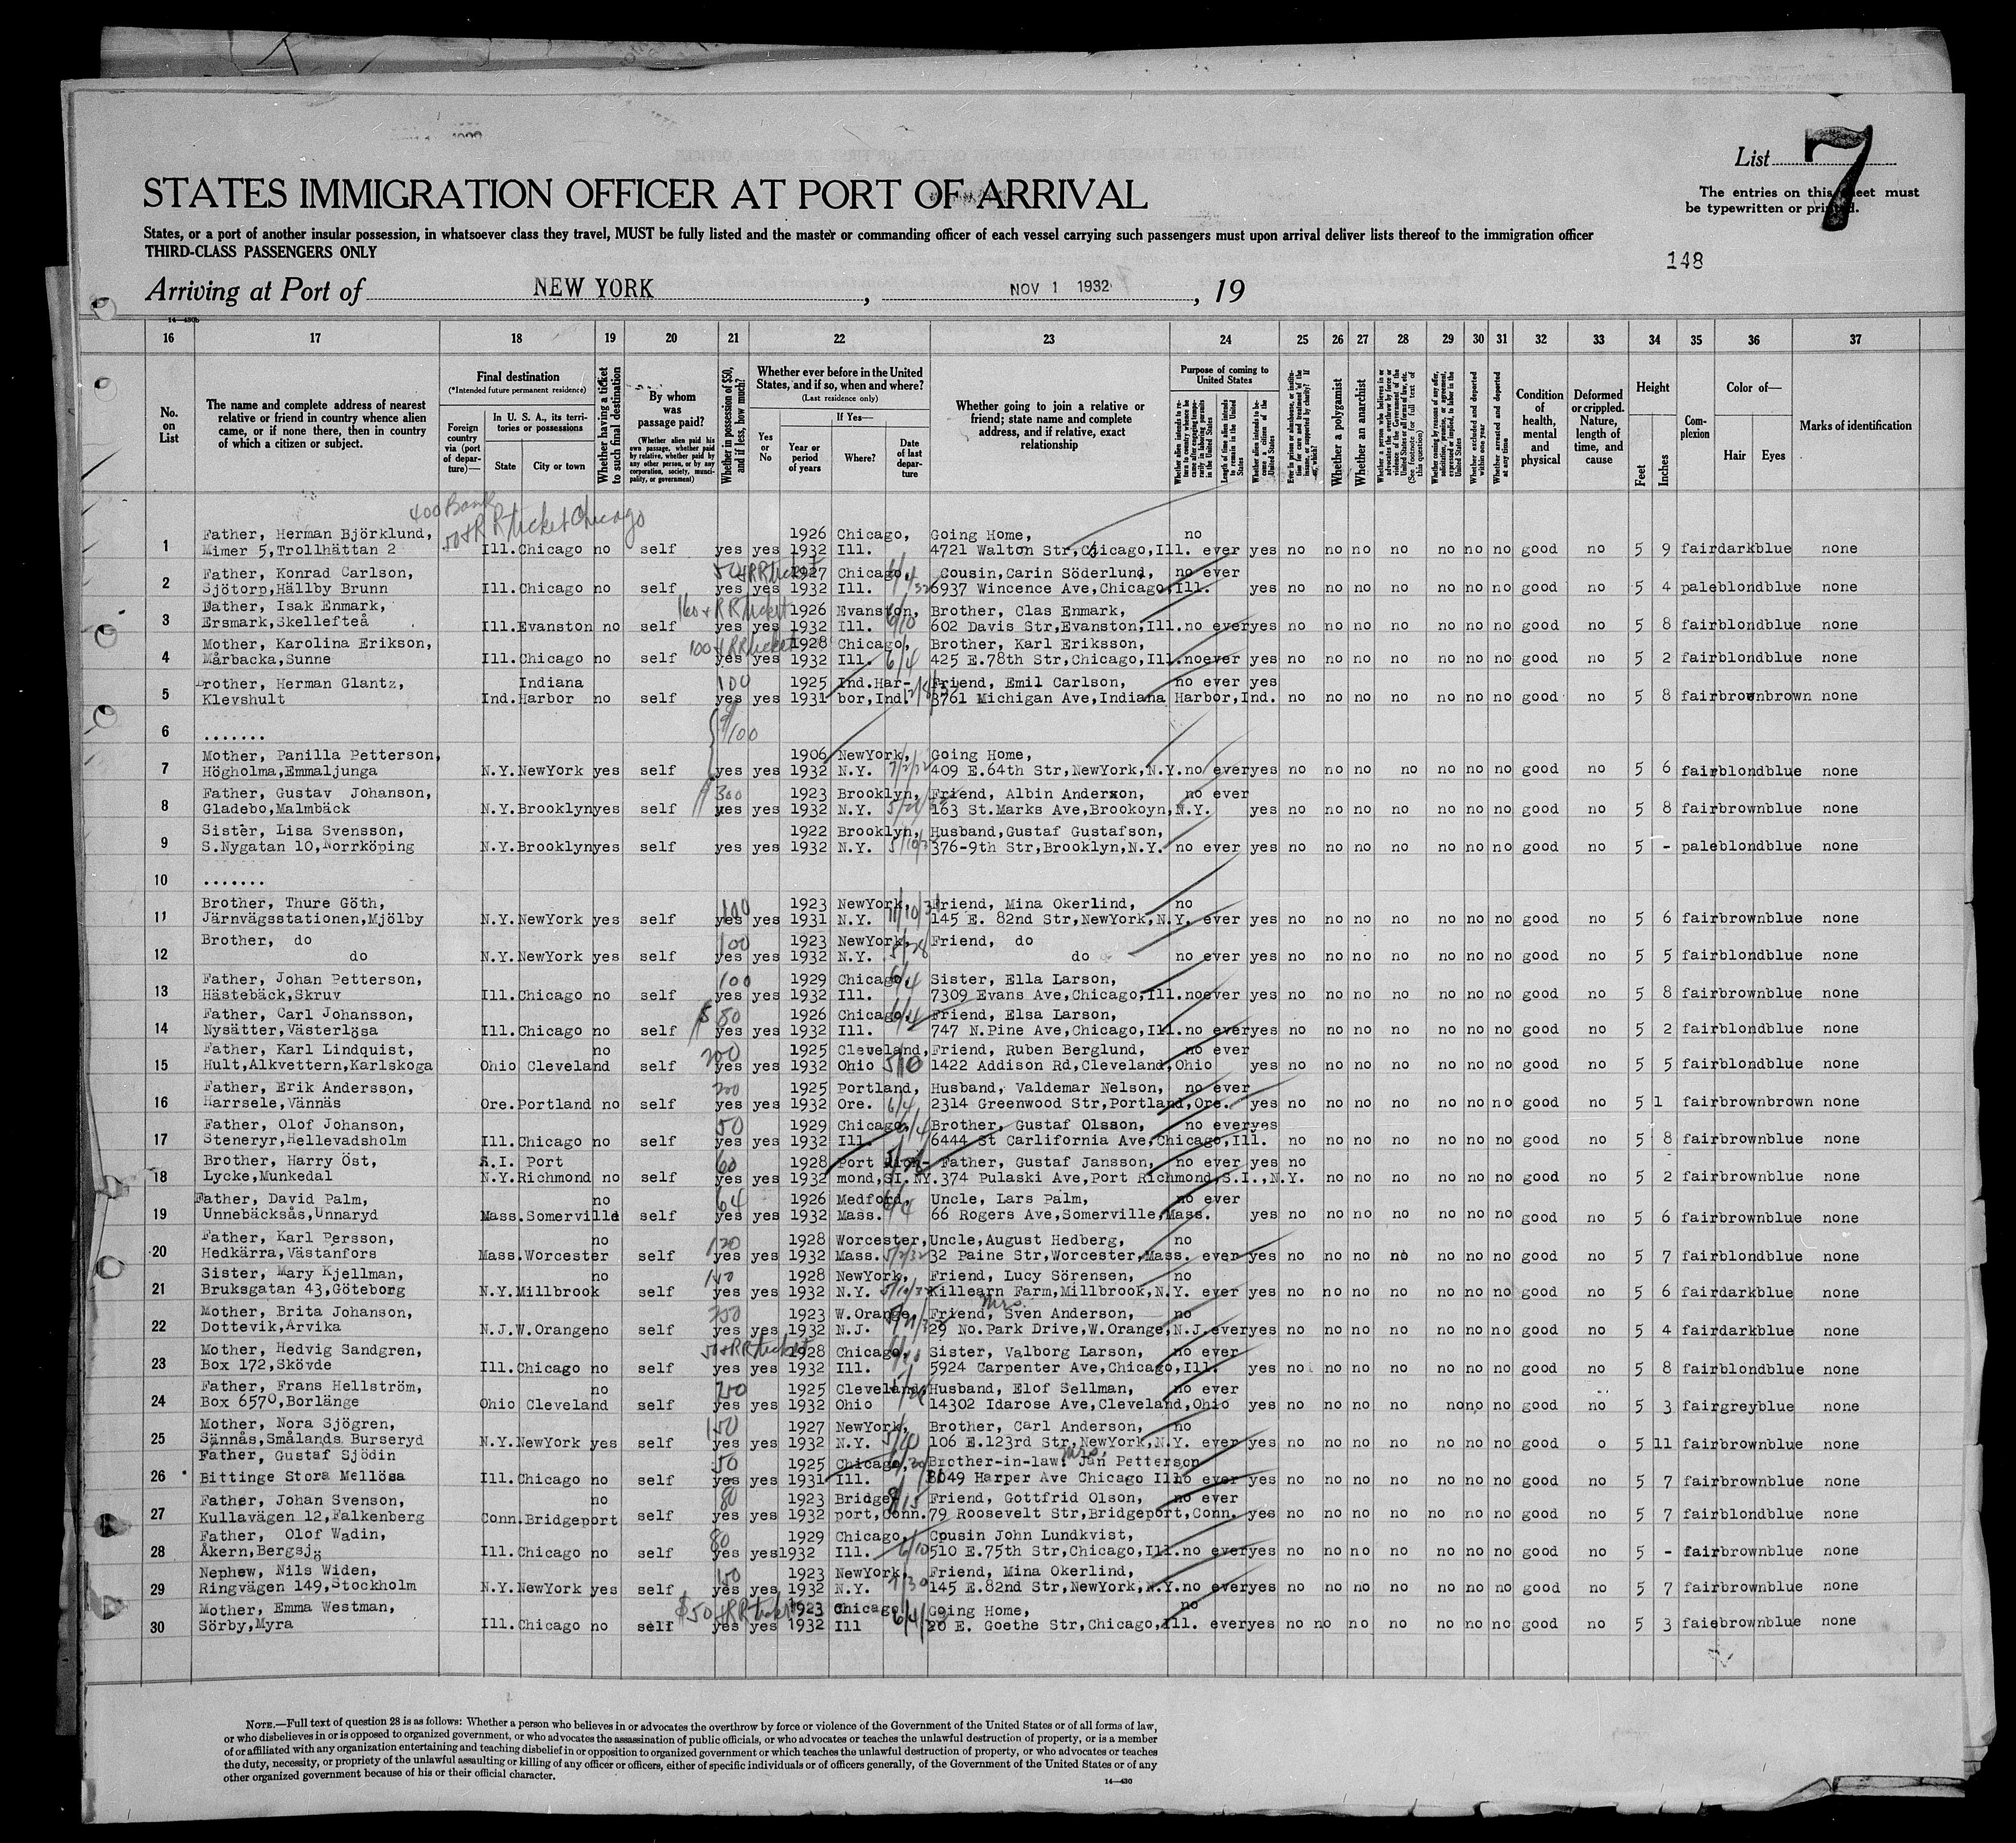 List 7
The entries on this sheet must
be typewritten or printed.
STATES IMMIGRATION OFFICER AT PORT OF ARRIVAL
States, or a port of another insular possession, in whatsoever class they travel, MUST be fully listed and the master or commanding officer of each vessel carrying such passengers must upon arrival deliver lists thereof to the immigration officer
THIRD-CLASS PASSENGERS ONLY
148
Arriving at Port of NEW YORK , NOV 1 1932 , 19
14—430b
16 17 18 19 20 21 22 23 24 25 26 27 28 29 30 31 32 33 34 35 36 37
No. on List
The name and complete address of nearest relative or friend in country whence alien came, or if none there, then in country of which a citizen or subject.
Final destination
(*Intended future permanent residence)
Foreign country via (port of departure)—
In U. S. A., its territories or possessions
State
City or town
Whether having a ticket to such final destination
By whom was passage paid?
(Whether alien paid his own passage, whether paid by relative, whether paid by any other person, or by any corporation, society, municipality, or government)
Whether in possession of $50, and if less, how much?
Whether ever before in the United States, and if so, when and where?
(Last residence only)
Yes or No
If Yes—
Year or period of years
Where?
Date of last departure
Whether going to join a relative or friend; state name and complete address, and if relative, exact relationship
Purpose of coming to United States
Whether alien intends to return to country whence he came after engaging temporarily in laboring pursuits in the United States
Length of time alien intends to remain in the United States
Whether alien intends to become a citizen of the United States
Ever in prison or almshouse, or institution for care and treatment of the insane, or supported by charity? If so, which?
Whether a polygamist
Whether an anarchist
Whether a person who believes in or advocates the overthrow by force or violence of the Government of the United States or all forms of law, etc. (See footnote for full text of this question)
Whether coming by reason of any offer, solicitation, promise, or agreement, expressed or implied, to labor in the United States
Whether excluded and deported within one year
Whether arrested and deported at any time
Condition of health, mental and physical
Deformed or crippled. Nature, length of time, and cause
Height
Feet
Inches
Complexion
Color of—
Hair Eyes
Marks of identification
400 Bank
50+RR ticket Chicago
Father, Herman Björklund, 1926 Chicago, Going Home, no
1 Mimer 5,Trollhättan 2 Ill. Chicago no self yes yes 1932 Ill. 4721 Walton Str,Chicago,Ill. ever yes no no no no no no no good no 5 9 fair dark blue none
50+RR ticket
Father, Konrad Carlson, 1927 Chicago, 6/4 Cousin,Carin Söderlund, no ever
2 Sjötorp,Hällby Brunn Ill. Chicago no self yes yes 1932 Ill. 6937 Wincence Ave,Chicago,Ill. yes no no no no no no no good no 5 4 pale blond blue none
160+RR ticket
Father, Isak Enmark, 1926 Evanston, Brother, Clas Enmark,
3 Ersmark,Skellefteå Ill. Evanston no self yes yes 1932 Ill. 6/10 602 Davis Str,Evanston,Ill. no ever yes no no no no no no no good no 5 8 fair blond blue none
100+RR ticket
Mother, Karolina Erikson, 1928 Chicago, Brother, Karl Eriksson,
4 Mårbacka,Sunne Ill. Chicago no self yes yes 1932 Ill. 6/4 425 E.78th Str,Chicago,Ill. no ever yes no no no no no no no good no 5 2 fair blond blue none
Brother, Herman Glantz, Indiana 100 1925 Ind.Har- Friend, Emil Carlson, no ever yes
5 Klevshult Ind. Harbor no self yes yes 1931 bor,Ind. 3761 Michigan Ave,Indiana Harbor,Ind. no no no no no no no good no 5 8 fair brown brown none
6 ....... 100
Mother, Panilla Petterson, 1906 NewYork, Going Home,
7 Högholma,Emmaljunga N.Y. NewYork yes self yes yes 1932 N.Y. 7/2/32 409 E.64th Str,NewYork,N.Y. no ever yes no no no no no no no good no 5 6 fair blond blue none
Father, Gustav Johanson, 300 1923 Brooklyn, Friend, Albin Anderxon, no ever
8 Gladebo,Malmbäck N.Y. Brooklyn yes self yes yes 1932 N.Y. 163 St.Marks Ave,Brookoyn,N.Y. yes no no no no no no no good no 5 8 fair brown blue none
Sister, Lisa Svensson, 1922 Brooklyn, Husband,Gustaf Gustafson,
9 S.Nygatan 10,Norrköping N.Y. Brooklyn yes self yes yes 1932 N.Y. 376-9th Str,Brooklyn,N.Y. no ever yes no no no no no no no good no 5 - pale blond blue none
10 .......
Brother, Thure Göth, 100 1923 NewYork, Friend, Mina Okerlind, no
11 Järnvägsstationen,Mjölby N.Y. NewYork yes self yes yes 1931 N.Y. 145 E. 82nd Str,NewYork,N.Y. ever yes no no no no no no no good no 5 6 fair brown blue none
Brother, do 100 1923 NewYork, Friend, do
12 do N.Y. NewYork yes self yes yes 1932 N.Y. 5/28 do no ever yes no no no no no no no good no 5 5 fair blond blue none
Father, Johan Petterson, 100 1929 Chicago, 6/4 Sister, Ella Larson,
13 Hästebäck,Skruv Ill. Chicago no self yes yes 1932 Ill. 7309 Evans Ave,Chicago,Ill. no ever yes no no no no no no no good no 5 8 fair brown blue none
Father, Carl Johansson, $80 1926 Chicago, 6/4 Friend, Elsa Larson,
14 Nysätter,Västerlösa Ill. Chicago no self yes yes 1932 Ill. 747 N.Pine Ave,Chicago,Ill. no ever yes no no no no no no no good no 5 2 fair blond blue none
Father, Karl Lindquist, no 200 1925 Cleveland, Friend, Ruben Berglund, no ever
15 Hult,Alkvettern,Karlskoga Ohio Cleveland self yes yes 1932 Ohio 5/10 1422 Addison Rd,Cleveland,Ohio yes no no no no no no no good no 5 5 fair blond blue none
Father, Erik Andersson, 200 1925 Portland, Husband, Valdemar Nelson, no ever
16 Harrsele,Vännäs Ore. Portland no self yes yes 1932 Ore. 6/4 2314 Greenwood Str,Portland,Ore. yes no no no no no no no good no 5 1 fair brown brown none
Father, Olof Johanson, 50 1929 Chicago, 6/4 Brother, Gustaf Olsson, no ever yes
17 Steneryr,Hellevadsholm Ill. Chicago no self yes yes 1932 Ill. 6444 St Carlifornia Ave,Chicago,Ill. no no no no no no no good no 5 8 fair brown blue none
Brother, Harry Öst, S.I. Port 60 1928 Port Rich- Father, Gustaf Jansson, no ever yes no
18 Lycke,Munkedal N.Y. Richmond no self yes yes 1932 mond,SI.NY. 374 Pulaski Ave,Port Richmond,S.I.,N.Y. no no no no no no good no 5 2 fair brown blue none
Father, David Palm, no 64 1926 Medford, 6/4 Uncle, Lars Palm, no ever
19 Unnebäcksås,Unnaryd Mass. Somerville self yes yes 1932 Mass. 66 Rogers Ave,Somerville,Mass. yes no no no no no no no good no 5 6 fair brown blue none
Father, Karl Persson, no 120 1928 Worcester, Uncle,August Hedberg, no
20 Hedkärra,Västanfors Mass. Worcester self yes yes 1932 Mass. 5/2/32 32 Paine Str,Worcester,Mass. ever yes no no no no no no no good no 5 7 fair blond blue none
Sister, Mary Kjellman, no 1928 NewYork, Friend, Lucy Sörensen, no
21 Bruksgatan 43,Göteborg N.Y. Millbrook self yes yes 1932 N.Y. Killearn Farm,Millbrook,N.Y. ever yes no no no no no no no good no 5 6 fair dark blue none
Mrs.
Mother, Brita Johanson, 1923 W.Orange, Friend, Sven Anderson, no
22 Dottevik,Arvika N.J. W.Orange no self yes yes 1932 N.J. 29 No.Park Drive,W.Orange,N.J. ever yes no no no no no no no good no 5 4 fair dark blue none
50+RR ticket
Mother, Hedvig Sandgren, 1928 Chicago, Sister, Valborg Larson, no ever
23 Box 172,Skövde Ill. Chicago no self yes yes 1932 Ill. 5924 Carpenter Ave,Chicago,Ill. yes no no no no no no no good no 5 8 fair blond blue none
Father, Frans Hellström, no 1925 Cleveland, Husband, Elof Sellman, no ever
24 Box 6570,Borlänge Ohio Cleveland self yes yes 1932 Ohio 14302 Idarose Ave,Cleveland,Ohio yes no no no no no no no good no 5 3 fair grey blue none
Mother, Nora Sjögren, 150 1927 NewYork, Brother, Carl Anderson, no
25 Sännås,Smålands Burseryd N.Y. NewYork yes self yes yes 1932 N.Y. 106 E.123rd Str,NewYork,N.Y. ever yes no no no no no no no good o 5 11 fair brown blue none
Mrs.
Father, Gustaf Sjödin 50 1925 Chicago, Brother-in-law: Jan Petterson
26 Bittinge Stora Mellösa Ill. Chicago no self yes yes 1931 Ill. 049 Harper Ave Chicago Ill no ever yes no no no no no no no good no 5 7 fair brown blue none
Father, Johan Svenson, no 80 1923 Bridge- 8/15 Friend, Gottfrid Olson, no ever
27 Kullavägen 12,Falkenberg Conn. Bridgeport self yes yes 1932 port,Conn. 79 Roosevelt Str,Bridgeport,Conn. yes no no no no no no no good no 5 7 fair blond blue none
Father, Olof Wadin, 80 1929 Chicago, Cousin John Lundkvist,
28 Åkern,Bergsjö Ill. Chicago no self yes yes 1932 Ill. 6/10 510 E.75th Str,Chicago,Ill. no ever yes no no no no no no no good no 5 - fair brown blue none
Nephew, Nils Widen, 150 1923 NewYork, Friend, Mina Okerlind,
29 Ringvägen 149,Stockholm N.Y. NewYork yes self yes yes 1932 N.Y. 145 E.82nd Str,NewYork,N.Y. no ever yes no no no no no no no good no 5 7 fair brown blue none
$50+RR ticket
Mother, Emma Westman, 1923 Chicago Going Home, no
30 Sörby,Myra Ill. Chicago no self yes yes 1932 Ill 6/4/32 20 E. Goethe Str,Chicago,Ill. ever yes no no no no no no no good no 5 3 faie brown blue none
NOTE.—Full text of question 28 is as follows: Whether a person who believes in or advocates the overthrow by force or violence of the Government of the United States or of all forms of law,
or who disbelieves in or is opposed to organized government, or who advocates the assassination of public officials, or who advocates or teaches the unlawful destruction of property, or is a member
of or affiliated with any organization entertaining and teaching disbelief in or opposition to organized government or which teaches the unlawful destruction of property, or who advocates or teaches
the duty, necessity, or propriety of the unlawful assaulting or killing of any officer or officers, either of specific individuals or of officers generally, of the Government of the United States or of any
other organized government because of his or their official character.
14—430